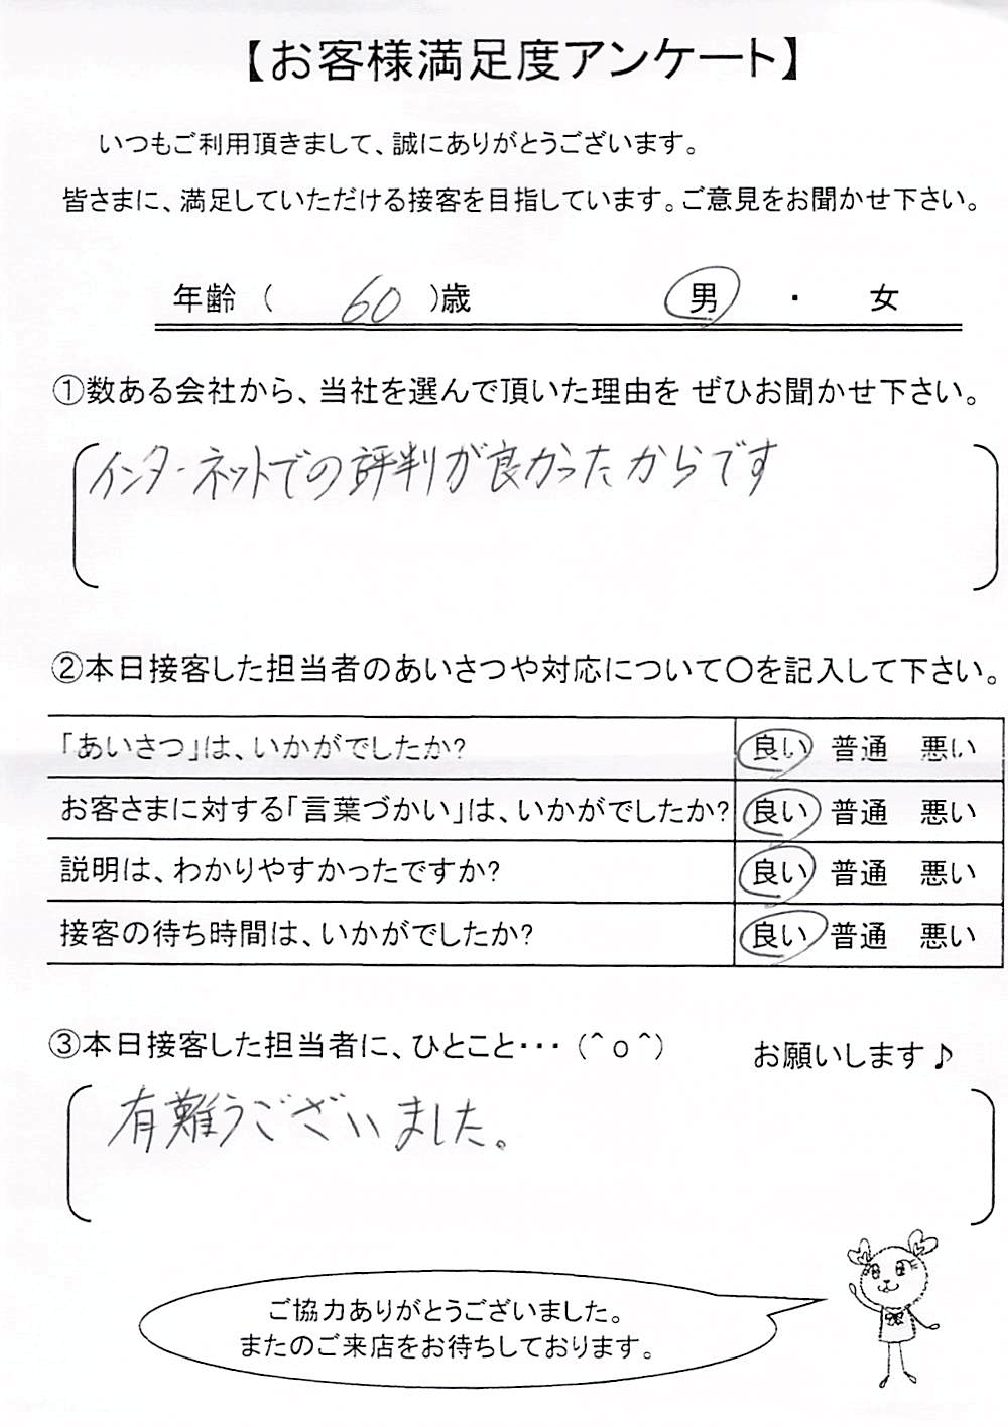 【お客様満足度アンケート】
いつもご利用頂きまして、誠にありがとうございます。
皆さまに、満足していただける接客を目指しています。ご意見をお聞かせ下さい。
年齢 ( 60 )歳 男 ・ 女
①数ある会社から、当社を選んで頂いた理由を ぜひお聞かせ下さい。
インターネットでの評判が良かったからです
②本日接客した担当者のあいさつや対応について〇を記入して下さい。
「あいさつ」は、いかがでしたか? 良い 普通 悪い
お客さまに対する「言葉づかい」は、いかがでしたか? 良い 普通 悪い
説明は、わかりやすかったですか? 良い 普通 悪い
接客の待ち時間は、いかがでしたか? 良い 普通 悪い
③本日接客した担当者に、ひとこと・・・ (^o^) お願いします♪
有難うございました。
ご協力ありがとうございました。
またのご来店をお待ちしております。